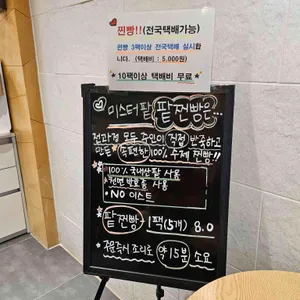 찐빵!!(전국택배가능)
찐빵 3팩이상 전국택배 실시합
니다. (택배비 : 5,000원)
10팩이상 택배비 무료
미스터팥 팥찐빵은...
전과정 모두 주인이 직접 반죽하고
만든 100% 수제 찐빵!!
100% 국내산팥 사용
천연 발효종 사용
NO 이스트
팥찐빵 1팩(5개) 8.0
주문즉시 조리로 약15분 소요